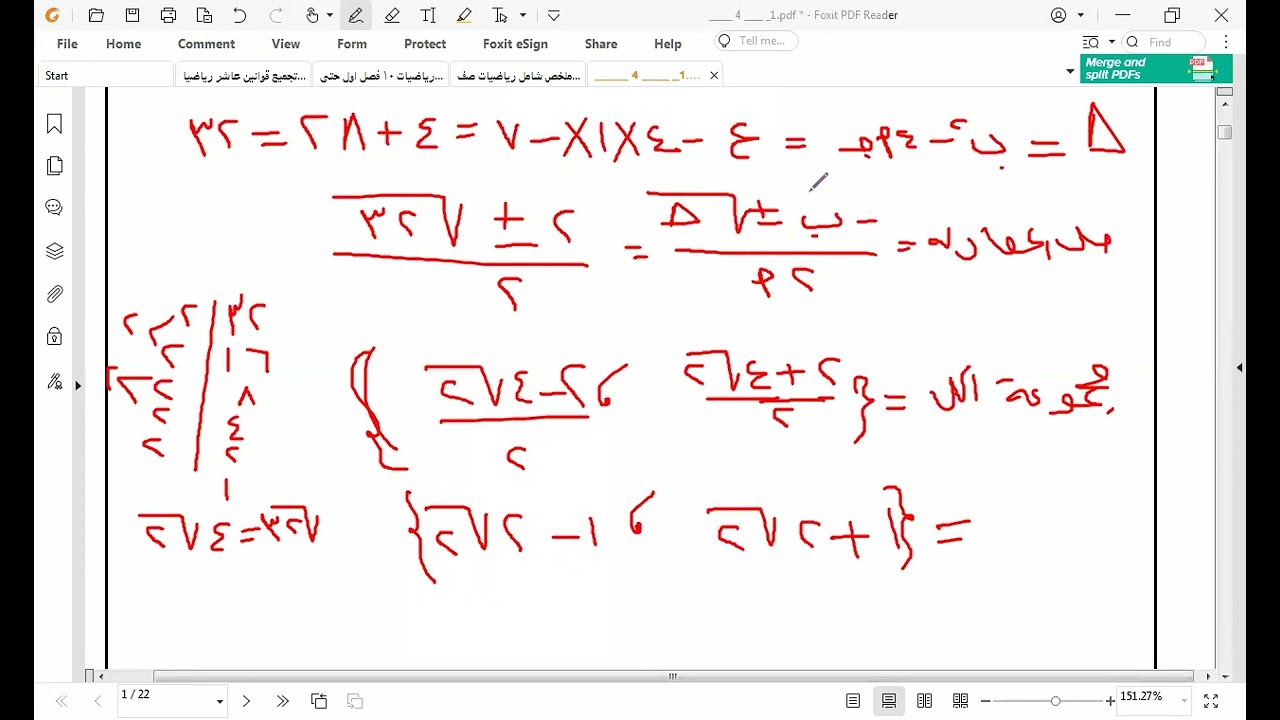 ____ 4 ____ _1.pdf * - Foxit PDF Reader
File Home Comment View Form Protect Foxit eSign Share Help Tell me... Find
Start
تجميع قوانين عاشر رياضيا...
رياضيات ١٠ فصل اول حتى...
ملخص شامل رياضيات صف...
_____ 4 _____ _1....
Merge and
split PDFs
Δ = ب² - ٤أجـ = ٤ - ٤×١×-٧ = ٤ + ٢٨ = ٣٢
= (-ب ± √Δ) / ٢أ = (٢ ± √٣٢) / ٢
مجموعة الحل = { (٢+٤√٢) / ٢ ، (٢-٤√٢) / ٢ }
= { ١ + ٢√٢ ، ١ - ٢√٢ }
٣٢ | ٢
١٦ | ٢
٨ | ٢
٤ | ٢
٢ | ٢
١
√٣٢ = ٤√٢
1 / 22
151.27%